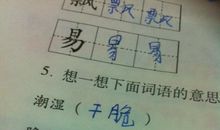 飘 飘 飘
易 易 易
5. 想一想下面词语的意思
潮湿（干脆）